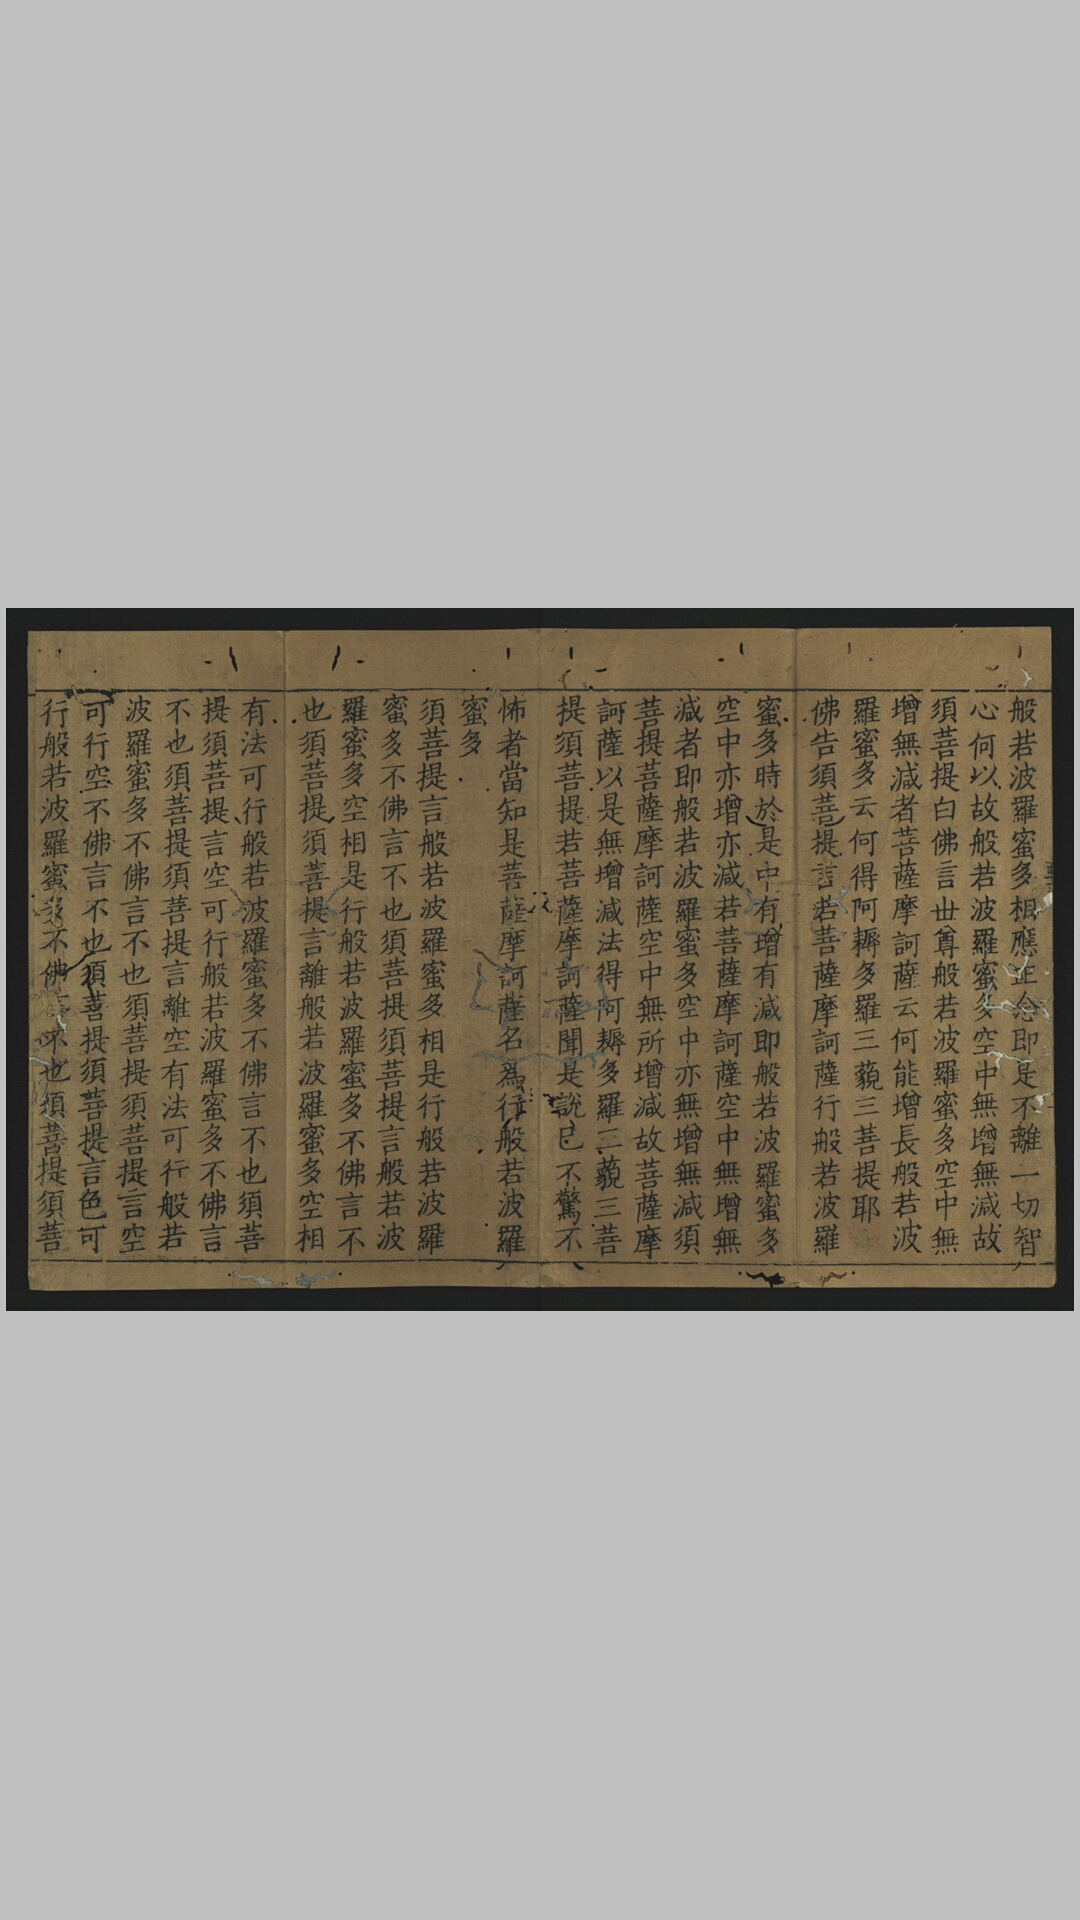 般若波羅蜜多相應正念即是不離一切智
心何以故般若波羅蜜多空中無增無減故
須菩提白佛言世尊般若波羅蜜多空中無
增無減者菩薩摩訶薩云何能增長般若波
羅蜜多云何得阿耨多羅三藐三菩提耶
佛告須菩提言若菩薩摩訶薩行般若波羅
蜜多時於是中有增有減即般若波羅蜜多
空中亦增亦減若菩薩摩訶薩空中無增無
減者即般若波羅蜜多空中亦無增無減須
菩提菩薩摩訶薩空中無所增減故菩薩摩
訶薩以是無增減法得阿耨多羅三藐三菩
提須菩提若菩薩摩訶薩聞是說已不驚不
怖者當知是菩薩摩訶薩名為行般若波羅
蜜多
須菩提言般若波羅蜜多相是行般若波羅
蜜多不佛言不也須菩提須菩提言般若波
羅蜜多空相是行般若波羅蜜多不佛言不
也須菩提須菩提言離般若波羅蜜多空相
有法可行般若波羅蜜多不佛言不也須菩
提須菩提言空可行般若波羅蜜多不佛言
不也須菩提須菩提言離空有法可行般若
波羅蜜多不佛言不也須菩提須菩提言空
可行空不佛言不也須菩提須菩提言色可
行般若波羅蜜多不佛言不也須菩提須菩